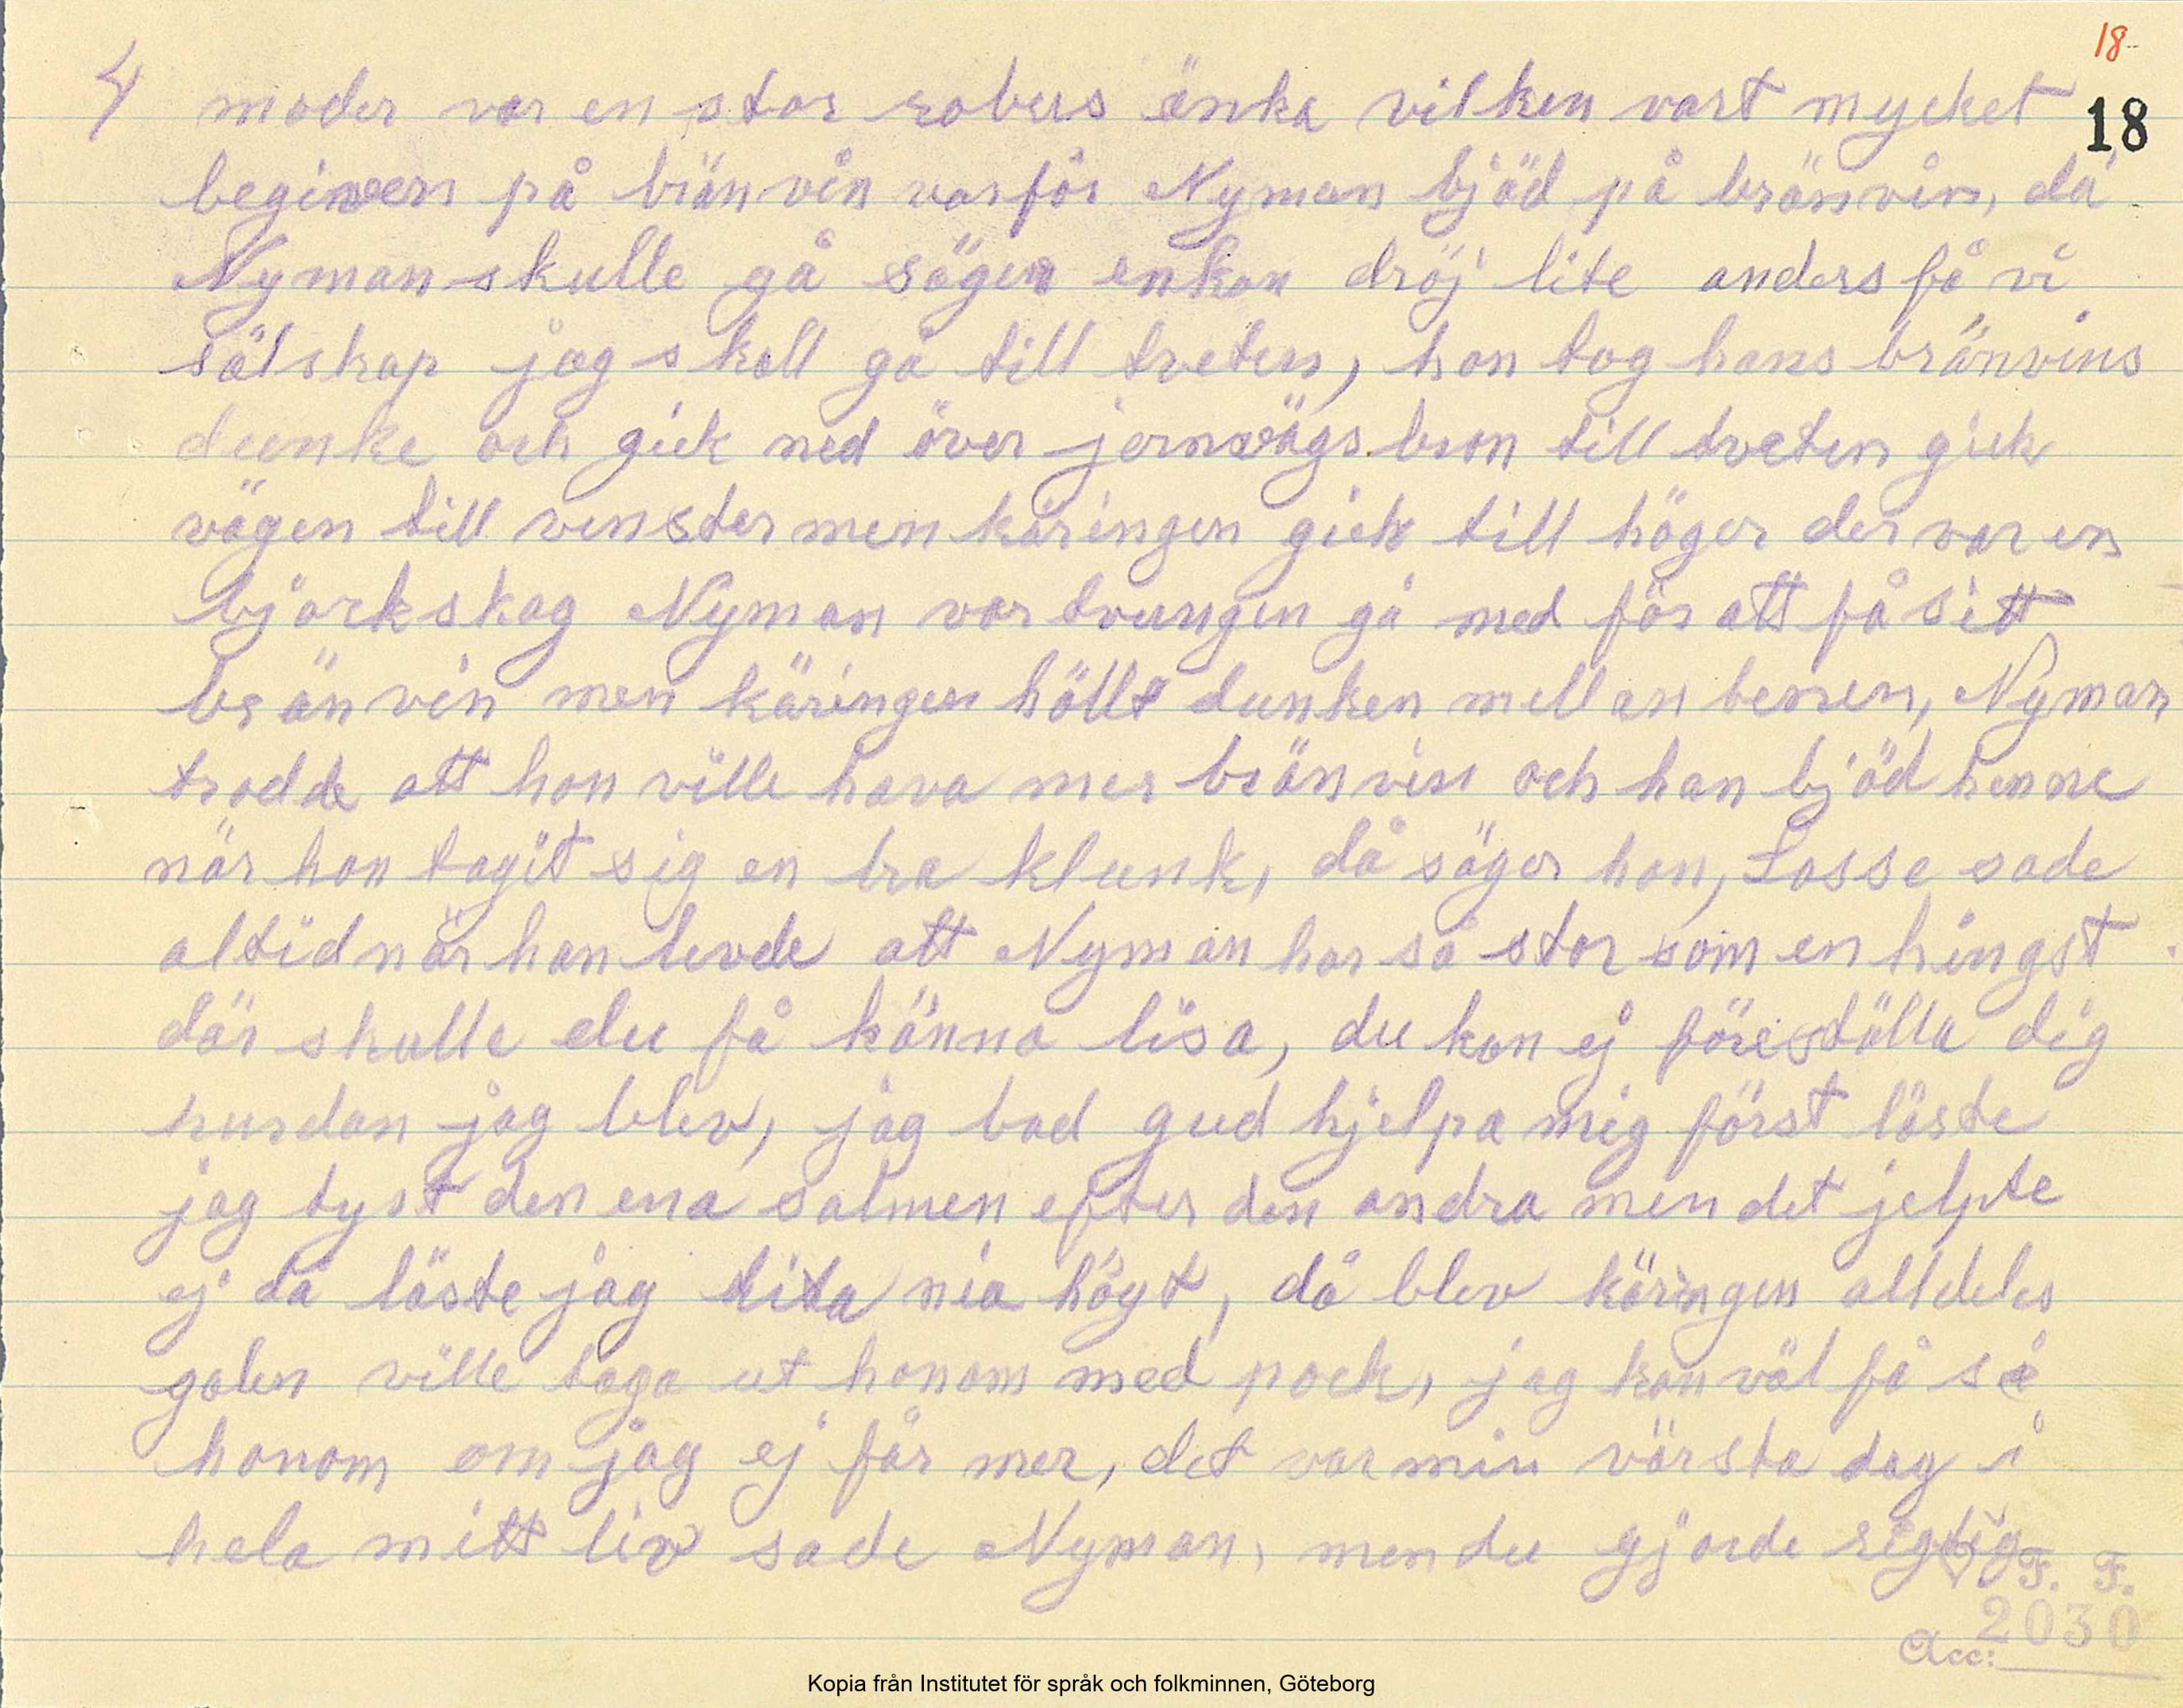 18
18
4 moder var en stor robers änka vilken vart mycket
begiven på bränvin varför Nyman bjöd på bränvin, då
Nyman skulle gå säger enkan dröj lite anders få vi
sälskap jag skall gå till tveten, hon tog hans bränvins
dunke och gick ned över jernvägs bron till tveten gick
vägen till venster men käringen gick till höger der var en
björkskog Nyman var tvungen gå med för att få sitt
bränvin men käringen höllt dunken mellan benen, Nyman
trodde att hon ville hava mer bränvin och han bjöd henne
när hon tagit sig en bra klunk, då säger hon, Lasse sade
altid när han levde att Nyman har så stor som en hingst
där skulle du få känna lisa, du kan ej föreställa dig
hurdan jag blev, jag bad gud hjelpa mig först läste
jag tyst den ena salmen efter den andra men det jelpte
ej då läste jag tita nia högt, då blev käringen alldeles
galen ville taga ut honom med pock, jag kan väl få se
honom om jag ej får mer, det var min värsta dag i
hela mitt liv sade Nyman, men du gjorde rigtig
V. F. F.
Acc: 2030
Kopia från Institutet för språk och folkminnen, Göteborg